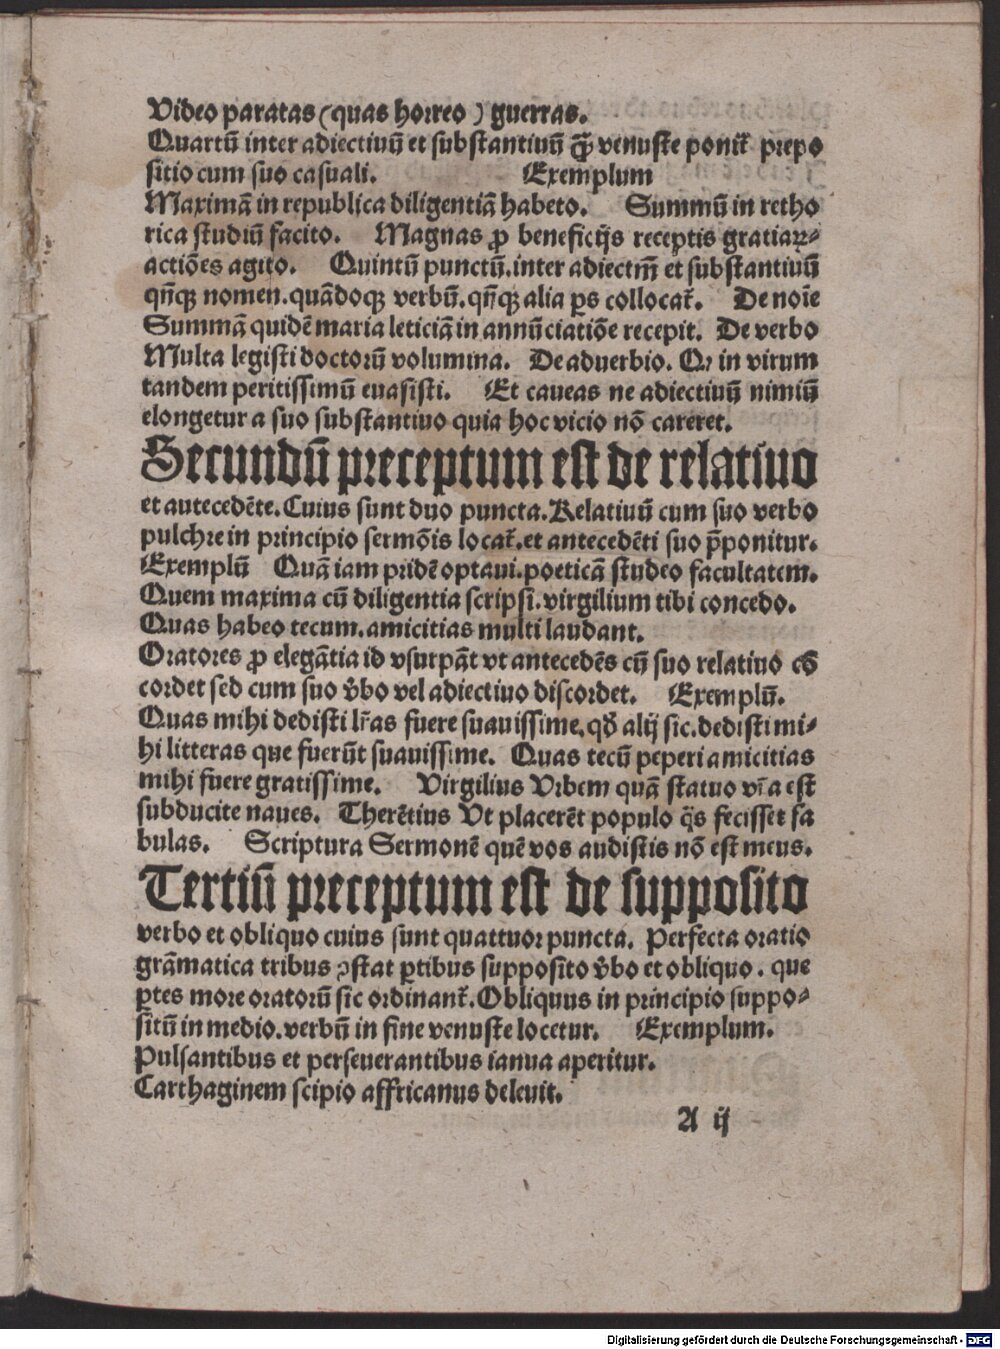 Video paratas (quas horreo) guerras.
Quartū inter adiectiuū et substantiuū qñqꝫ venuste ponit̃ prepo
sitio cum suo casuali. Exemplum
Maximā in republica diligentiā habeto. Summū in retho
rica studiū facito. Magnas ꝓ beneficijs receptis gratiaꝝ-
actiōes agito. Quintū punctū. inter adiectm̄ et substantiuū
qñqꝫ nomen. quādoqꝫ verbū. qñqꝫ alia ꝑs collocat̃. De noīe
Summā quidē maria leticiā in annūciatiōe recepit. De verbo
Multa legisti doctorū volumina. De aduerbio. Qꝛ in virum
tandem peritissimū euasisti. Et caueas ne adiectiuū nimiū
elongetur a suo substantiuo quia hoc vicio nō careret.
Secundū preceptum est de relatiuo
et autecedēte. Cuius sunt duo puncta. Relatiuū cum suo verbo
pulchre in principio sermōis locat̃. et antecedēti suo p̄ponitur.
Exemplū Quā iam pridē optaui. poeticā studeo facultatem.
Quem maxima cū diligentia scripsi. virgilium tibi concedo.
Quas habeo tecum. amicitias multi laudant.
Oratores ꝓ elegātia id vsurpāt vt antecedēs cū suo relatiuo cō
cordet sed cum suo v̄bo vel adiectiuo discordet. Exemplū.
Quas mihi dedisti lr̄as fuere suauissime. qđ alij sic. dedisti mi-
hi litteras que fuerūt suauissime. Quas tecū peperi amicitias
mihi fuere gratissime. Virgilius Vrbem quā statuo vr̄a est
subducite naues. Therētius Vt placerēt populo q̄s fecisset fa
bulas. Scriptura Sermonē quē vos audistis nō est meus.
Tertiū preceptum est de supposito
verbo et obliquo cuius sunt quattuor puncta. Perfecta oratio
grāmatica tribus ꝯstat ꝑtibus supposito v̄bo et obliquo. que
ꝑtes more oratorū sic ordinant̃. Obliquus in principio suppo-
sitū in medio. verbū in fine venuste locetur. Exemplum.
Pulsantibus et perseuerantibus ianua aperitur.
Carthaginem scipio affricanus deleuit.
A ij
Digitalisierung gefördert durch die Deutsche Forschungsgemeinschaft - DFG